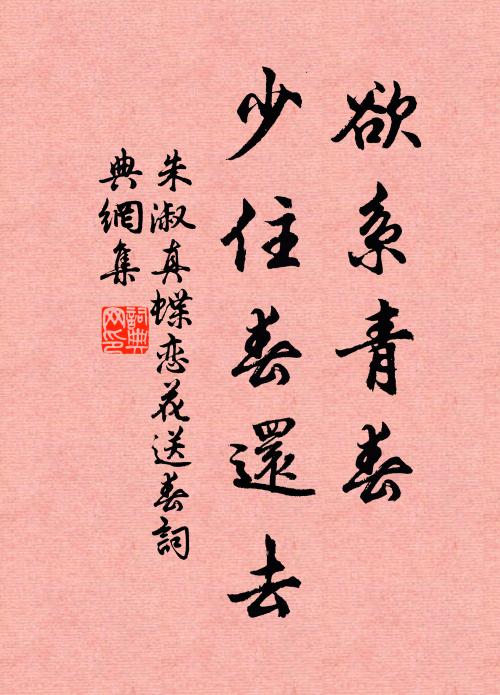 欲系青春
少住春還去
朱淑真蝶恋花送春詞
典網集
詞典网印